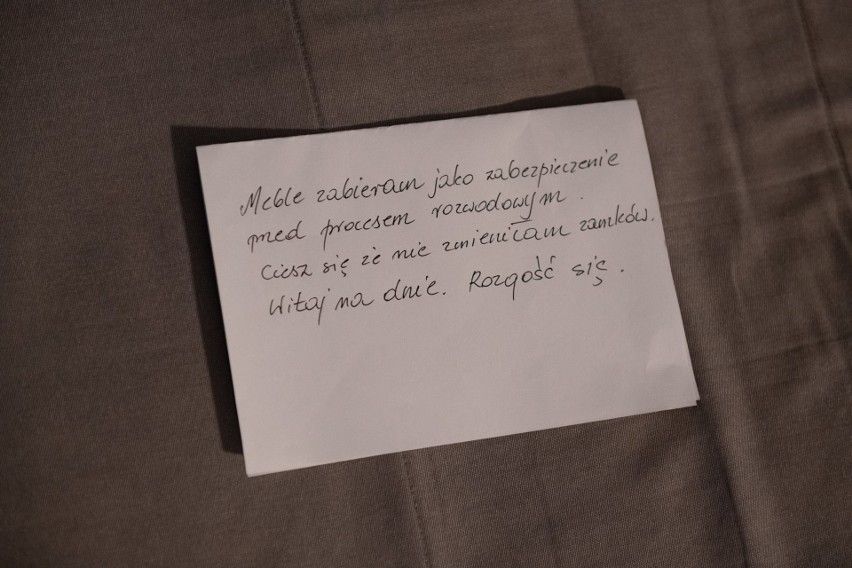 Meble zabieram jako zabezpieczenie
przed procesem rozwodowym.
Ciesz się że nie zmieniłam zamków.
Witaj na dnie. Rozgość się.